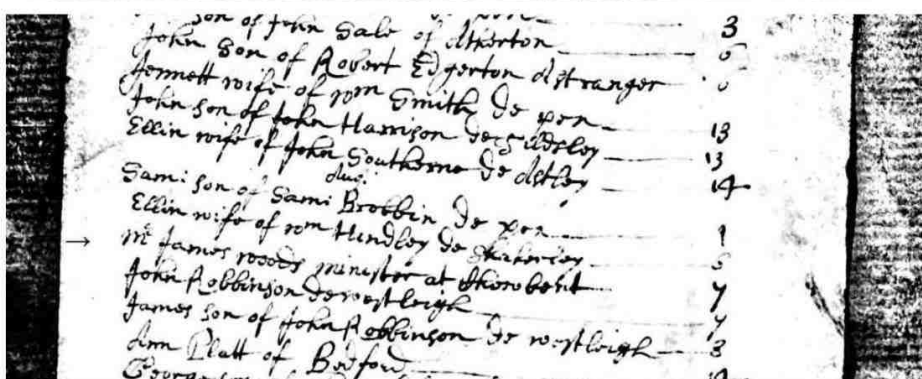 son of John Sale of Atherton 3
John Son of Robert Edgerton A stranger 6
Jennett wife of Wm Smith de pen 6
John son of John Harrison de Tildsley 13
Ellin wife of John Southerne de Astley 13
Aug: 14
Sam: Son of Sam: Brobbin de pen 1
Ellin wife of Wm Hindley de Shakerley 5
Mr James Woods minister at Chowbent 7
John Robbinson de Westleigh 7
James Son of John Robbinson de Westleigh 8
Ann Platt of Bedford
George